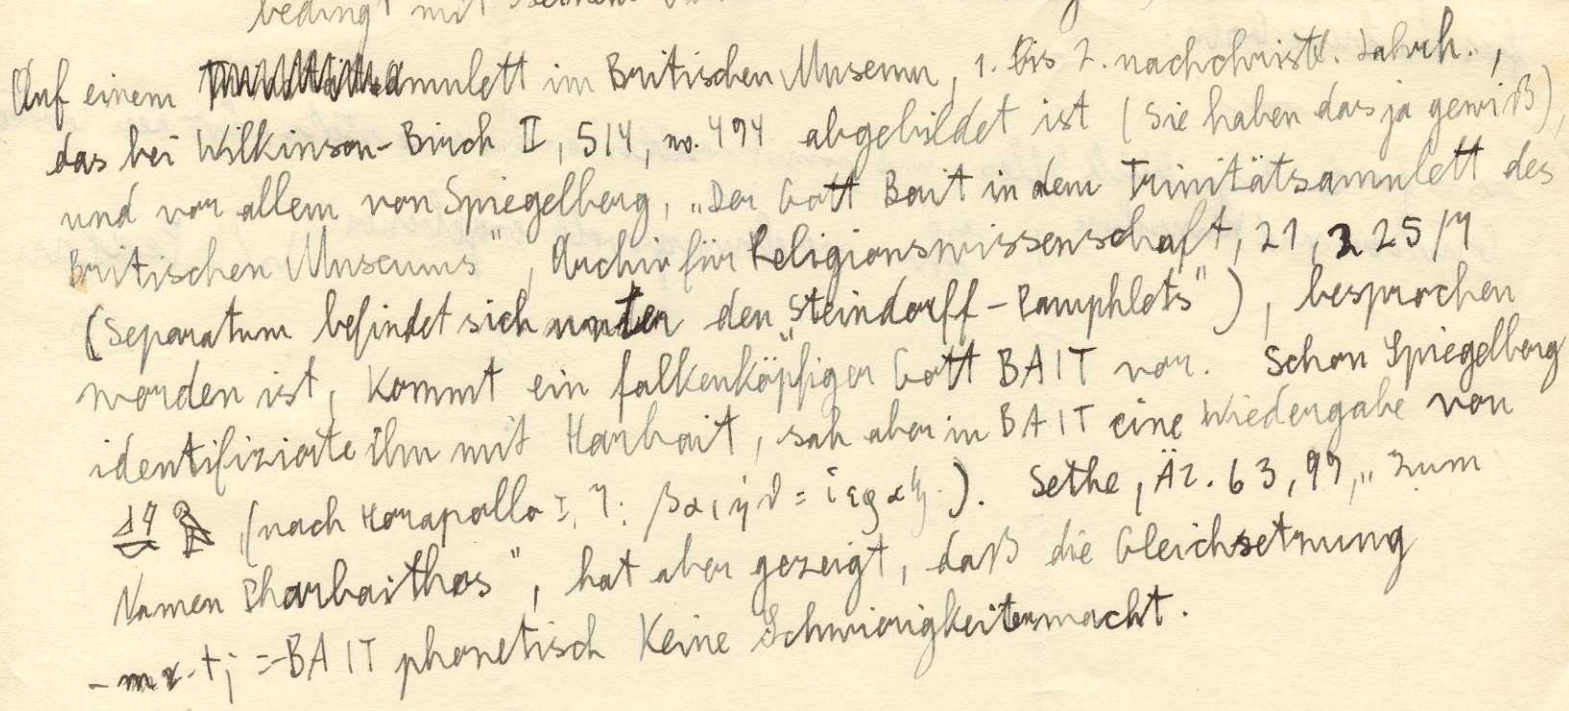 bedingt mit seinem
Auf einem Amulett im Britischen Museum, 1. bis 2. nachchristl. Jahrh.,
das bei Wilkinson-Birch II, 514, no. 494 abgebildet ist (Sie haben das ja gewiß),
und vor allem von Spiegelberg, „Der Gott Bait in dem Trinitätsamulett des
Britischen Museums", Archiv für Religionswissenschaft, 21, 225/7
(Separatum befindet sich unter den „Steindorff-Pamphlets"), besprochen
worden ist, kommt ein falkenköpfiger Gott BAIT vor. Schon Spiegelberg
identifizierte ihn mit Harbait, sah aber in BAIT eine Wiedergabe von
(nach Horapollo I, 7: βαιήθ = ἱέραξ). Sethe, ÄZ. 63, 99, „Zum
Namen Pharbaithos", hat aber gezeigt, daß die Gleichsetzung
-mr-tj = BAIT phonetisch keine Schwierigkeiten macht.